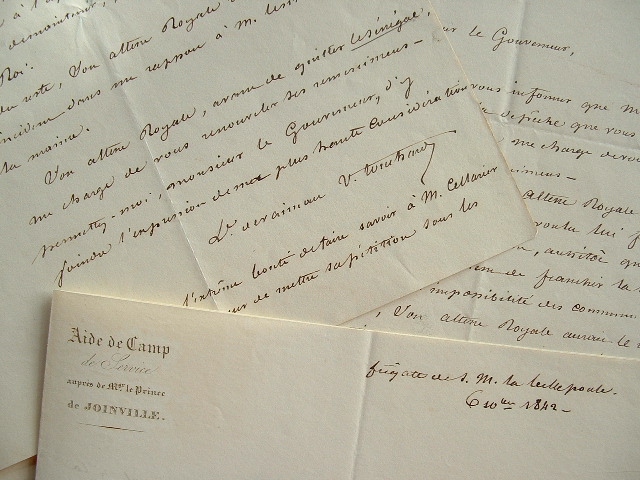 Roi.
du reste, Son altesse Royale
incident dans un rapport à M.
la marine.
Son altesse Royale, avant de quitter le Sénégal,
me charge de vous renouveler ses remerciemens-
permettez-moi, monsieur le Gouverneur, d'y
joindre l'expression de ma plus haute considération
V. Touchard
l'extrême bonté de faire savoir à M. Cellarier
de mettre sa pétition sous les
le Gouverneur,
vous informer que
dépêche que vous
me charge de vous
altesse Royale
voulu lui
aussitôt
de franchir la
impossibilité des commun
Son altesse Royale aurait
Aide de Camp
de Service
auprès de Mgr. le Prince
de JOINVILLE.
frégate de S. M. la belle poule.
6 10bre 1842-